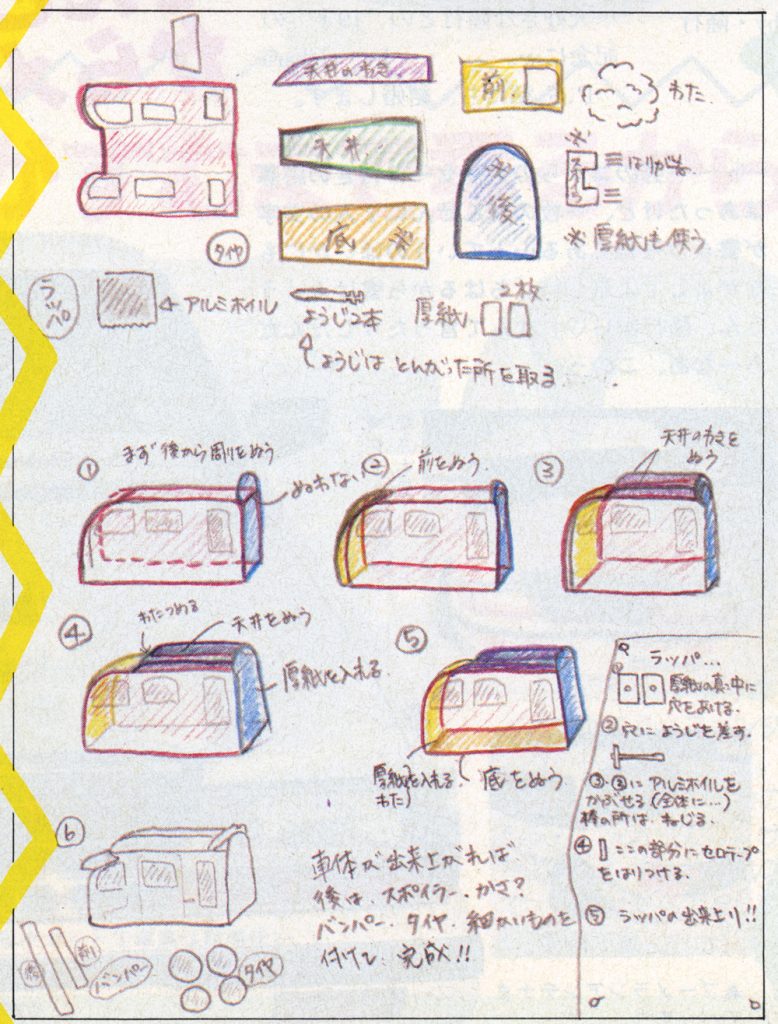 天井のわき
前
わた
天井
※
※
後
はりがね
底 ※
※厚紙も使う
タイヤ
ラッパ
アルミホイル
ようじ2本
厚紙
2枚
ようじは とんがった所を取る.
① まず後から周りをぬう
ぬわない
② 前をぬう.
③
天井のわきを
ぬう
④
わたつめる
天井をぬう
厚紙を入れる.
⑤
厚紙を入れる.
わた)
底をぬう
ラッパ…
厚紙の真ン中に
穴をあける.
②穴に ようじを差す.
③.②に アルミホイルを
かぶせる(全体に…)
棒の所は ねじる.
④ ここの部分にセロテープ
をはりつける.
⑤ ラッパの出来上り!!
⑥
車体が出来上がれば
後は、スポイラー.かさ?
バンパー.タイヤ.細かいものを
付けて.完成!!
前
バンパー
タイヤ